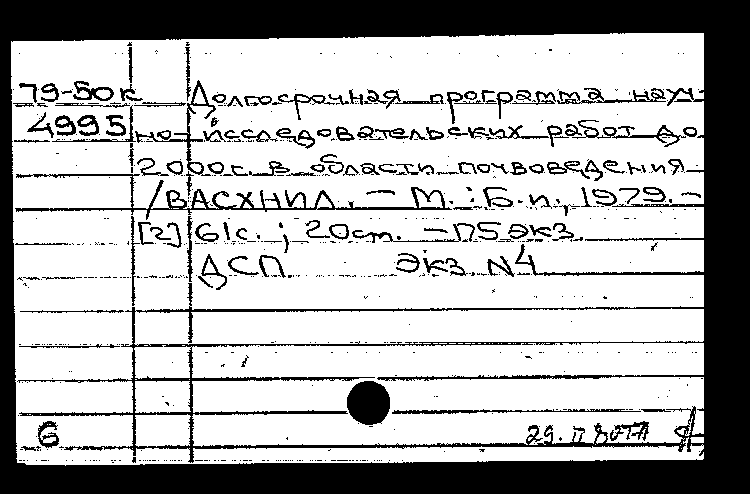 79-50к Долгосрочная программа науч-
4995 но-исследовательских работ до
2000г. в области почвоведения
/ВАСХНИЛ. — М.: Б.и., 1979. —
[2] 61с.; 20см. — 75 экз.
ДСП Экз. N4
6 29. II